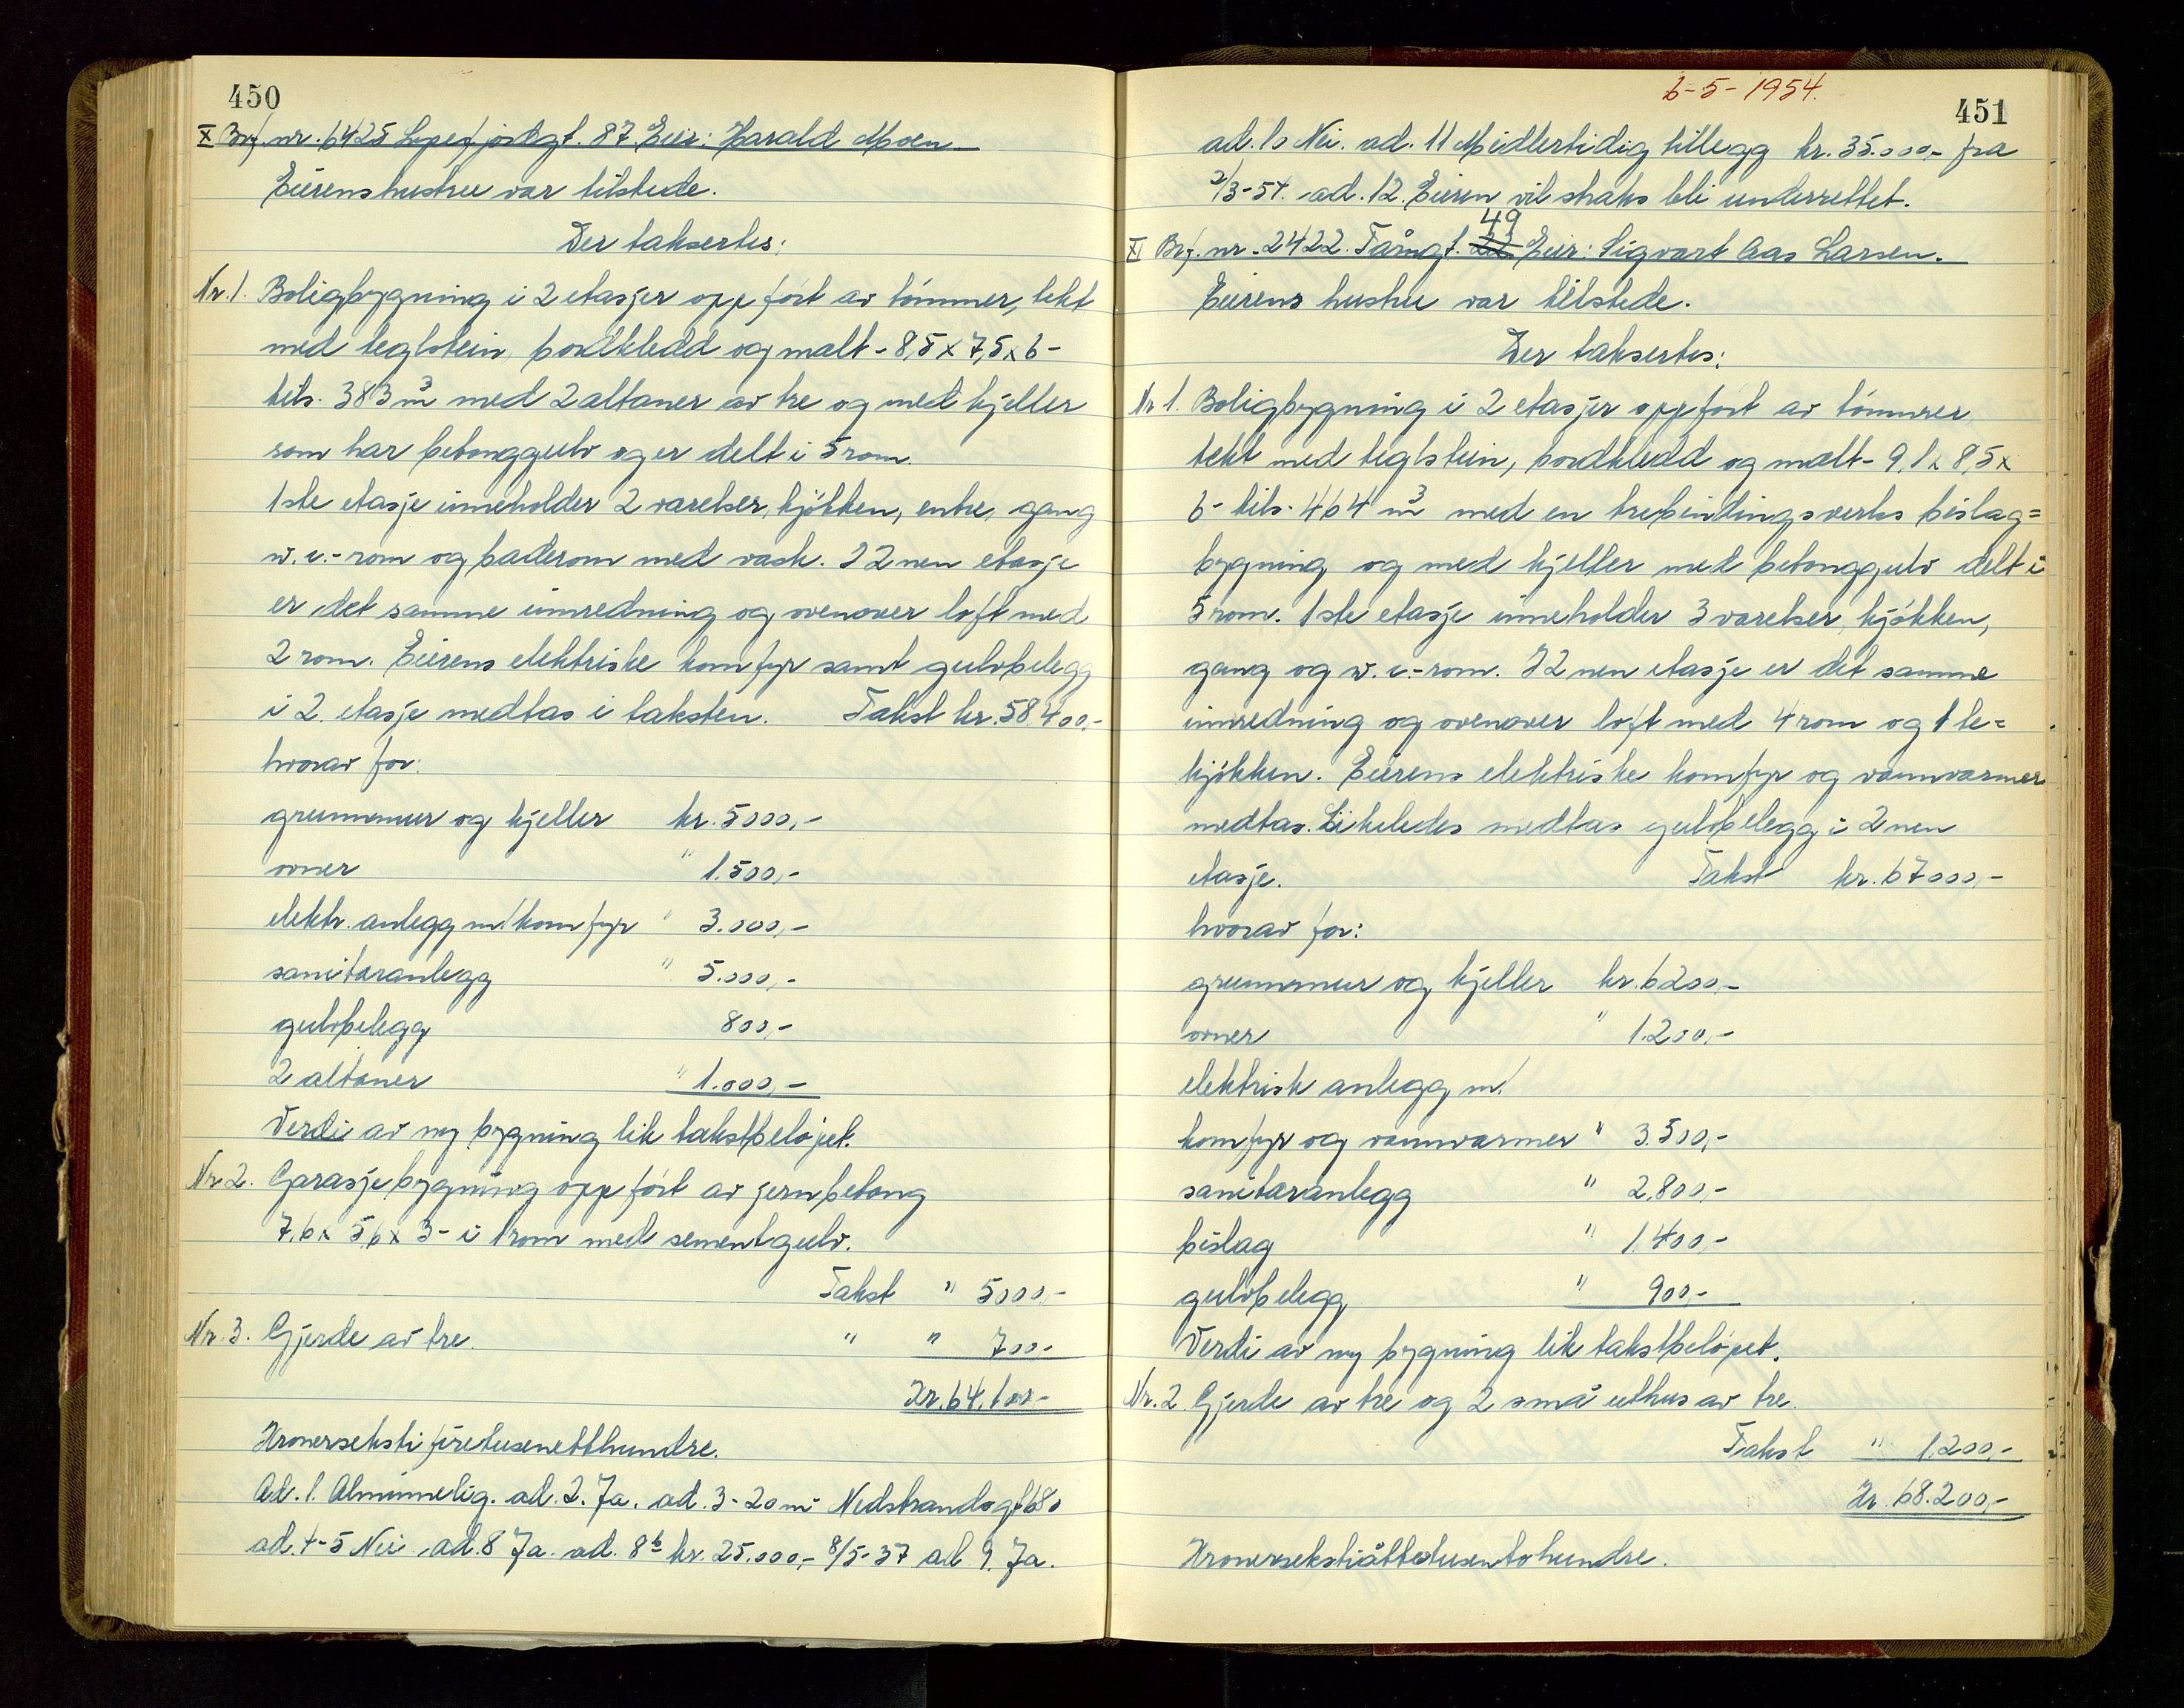 450
X Brf. nr. 6425 Superfjordgt. 87 Eier: Harald Moen
Eierens hustru var tilstede.
Der taksertes:
Nr. 1. Boligbygning i 2 etasjer oppført av tømmer, tekt
med teglstein, bordkledd og malt - 8,5 x 7,5 x 6 -
tils. 383 m³ med 2 altaner av tre og med kjeller
som har betonggulv og er delt i 5 rom.
1ste etasje inneholder 2 værelser, kjøkken, entre, gang
w.c.-rom og baderom med vask. I 2nen etasje
er det samme innredning og ovenover loft med
2 rom. Eierens elektriske komfyr samt gulvbelegg
i 2. etasje medtas i taksten. Takst kr. 58.400,-
hvorav for:
grunnmur og kjeller kr. 5000,-
ovner " 1.500,-
elektr. anlegg m/komfyr " 3.000,-
sanitæranlegg " 5.000,-
gulvbelegg 800,-
2 altaner " 1.000,-
Verdi av ny bygning lik takstbeløpet.
Nr. 2. Garasjebygning oppført av jernbetong
7,6 x 5,6 x 3 - i 1 rom med sementgulv.
Takst " 5000,-
Nr. 3. Gjerde av tre. " " 700,-
Kr. 64.100,-
Kronersekstifiretusenetthundre.
Ad. 1. Alminnelig. ad. 2. Ja. ad. 3 - 20 m Nedstrandsgt 680
ad. 4-5 Nei. ad. 8 Ja. ad. 8b kr. 25.000,- 8/5-37 ad 9. Ja.
6-5-1954.
451
ad. 10 Nei. ad. 11 Midlertidig tillegg kr. 35.000,- fra
2/3-54. ad. 12. Eieren vil straks bli underrettet.
49
XI Brf. nr. 2422. Tårngt. 22 Eier: Sigvart Aas Larsen.
Eierens hustru var tilstede.
Der taksertes:
Nr 1. Boligbygning i 2 etasjer oppført av tømmer,
tekt med teglstein, bordkledd og malt - 9,1 x 8,5 x
6 - tils. 464 m³ med en trebindingsverks bislag=
bygning og med kjeller med betonggulv delt i
5 rom. 1ste etasje inneholder 3 værelser, kjøkken,
gang og w.c.-rom. I 2nen etasje er det samme
innredning og ovenover loft med 4 rom og 1 te=
kjøkken. Eierens elektriske komfyr og vannvarmer
medtas. Likeledes medtas gulvbelegg i 2nen
etasje. Takst kr. 67000,-
hvorav for:
grunnmur og kjeller kr. 6200,-
ovner " 1.200,-
elektrisk anlegg m/
komfyr og vannvarmer " 3.500,-
sanitæranlegg " 2.800,-
bislag " 1.400,-
gulvbelegg " 900,-
Verdi av ny bygning lik takstbeløpet.
Nr. 2 Gjerde av tre og 2 små uthus av tre.
Takst " 1.200,-
Kr. 68.200,-
Kronersekstiåttetusentohundre.